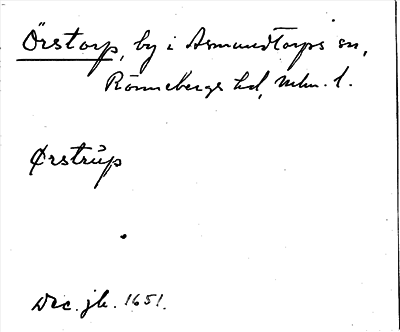 Örstorp, by i Asmundtorps sn,
Rönnebergs hd, Mlm. l.
Ørstrup
Dec. jb. 1651.